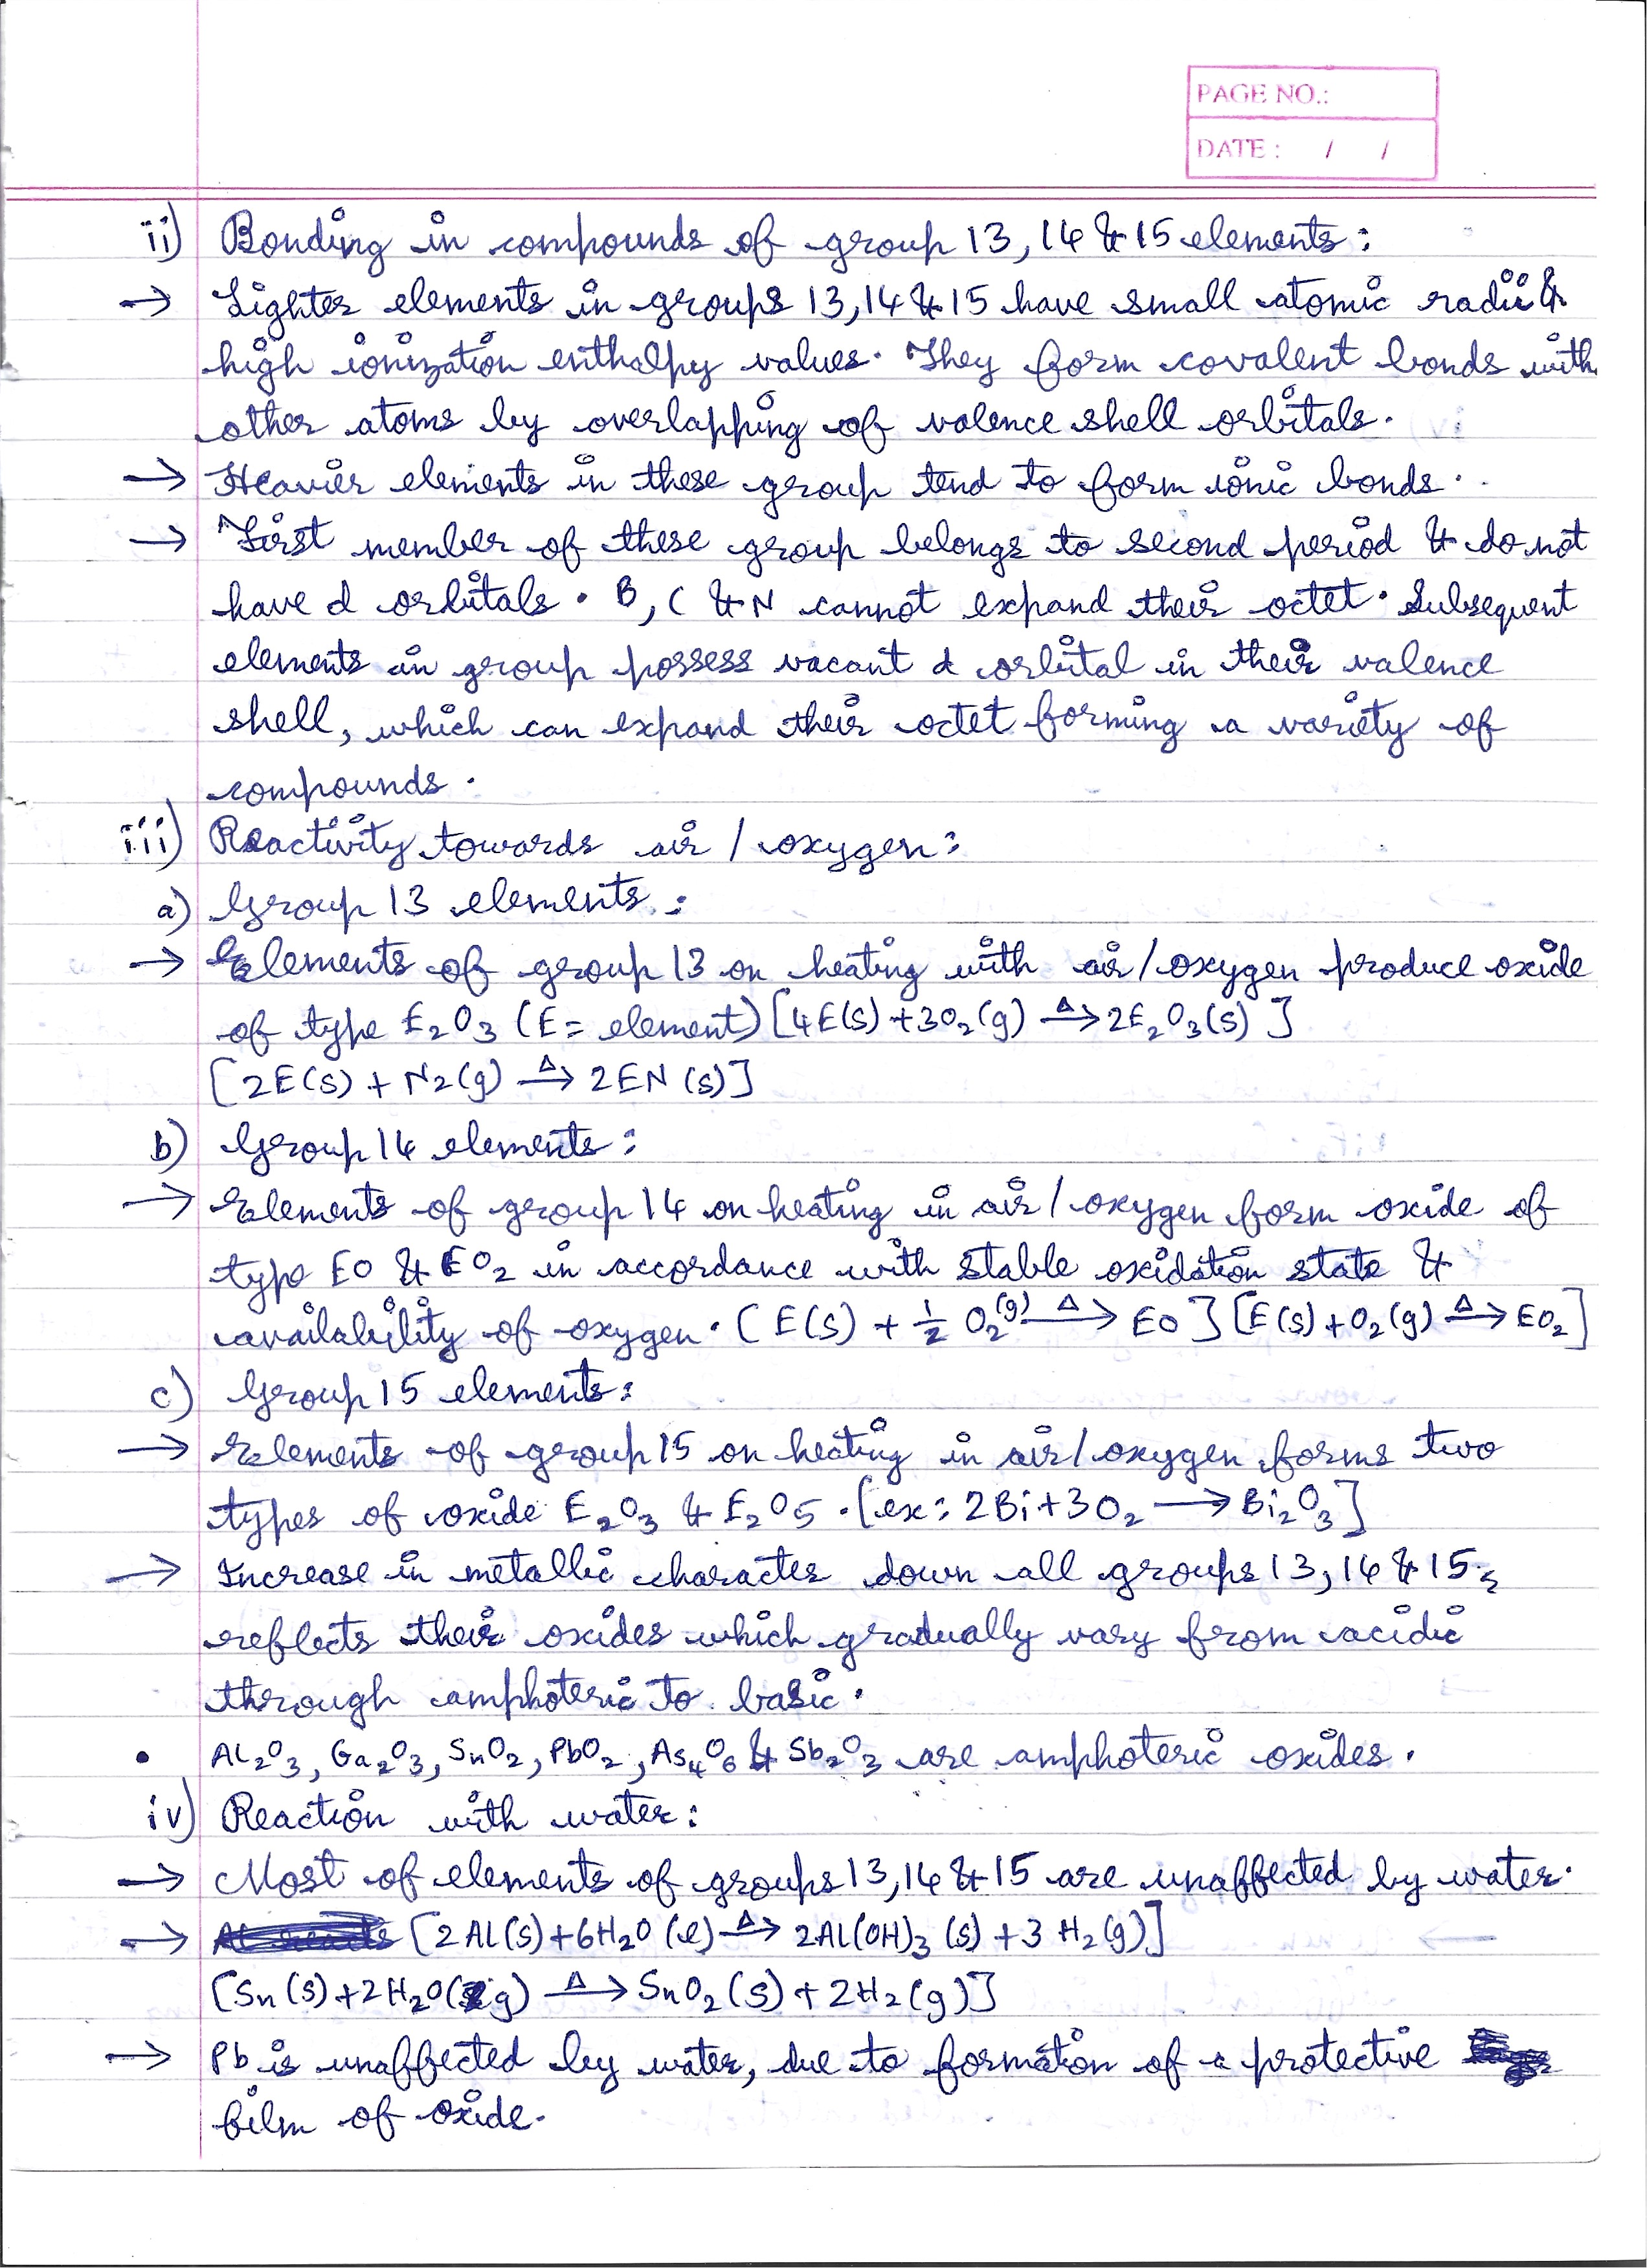 PAGE NO.:
DATE : / /
ii) Bonding in compounds of group 13, 14 & 15 elements :
→ Lighter elements in groups 13, 14 & 15 have small atomic radii &
high ionization enthalpy values. They form covalent bonds with
other atoms by overlapping of valence shell orbitals.
→ Heavier elements in these group tend to form ionic bonds.
→ First member of these group belongs to second period & do not
have d orbitals. B, C & N cannot expand their octet. Subsequent
elements in group possess vacant d orbital in their valence
shell, which can expand their octet forming a variety of
compounds.
iii) Reactivity towards air / oxygen :
a) Group 13 elements :
→ Elements of group 13 on heating with air/oxygen produce oxide
of type E₂O₃ (E = element) [4E(s) + 3O₂(g) –Δ→ 2E₂O₃(s)]
[2E(s) + N₂(g) –Δ→ 2EN(s)]
b) Group 14 elements :
→ Elements of group 14 on heating in air / oxygen form oxide of
type EO & EO₂ in accordance with stable oxidation state &
availability of oxygen. [E(s) + ½ O₂(g) –Δ→ EO] [E(s) + O₂(g) –Δ→ EO₂]
c) Group 15 elements :
→ Elements of group 15 on heating in air/oxygen forms two
types of oxide E₂O₃ & E₂O₅. [ex: 2Bi + 3O₂ → Bi₂O₃]
→ Increase in metallic character down all groups 13, 14 & 15,
reflects their oxides which gradually vary from acidic
through amphoteric to basic.
• Al₂O₃, Ga₂O₃, SnO₂, PbO₂, As₄O₆ & Sb₂O₃ are amphoteric oxides.
iv) Reaction with water :
→ Most of elements of groups 13, 14 & 15 are unaffected by water.
→ [2Al(s) + 6H₂O(l) –Δ→ 2Al(OH)₃(s) + 3H₂(g)]
[Sn(s) + 2H₂O(g) –Δ→ SnO₂(s) + 2H₂(g)]
→ Pb is unaffected by water, due to formation of a protective
film of oxide.